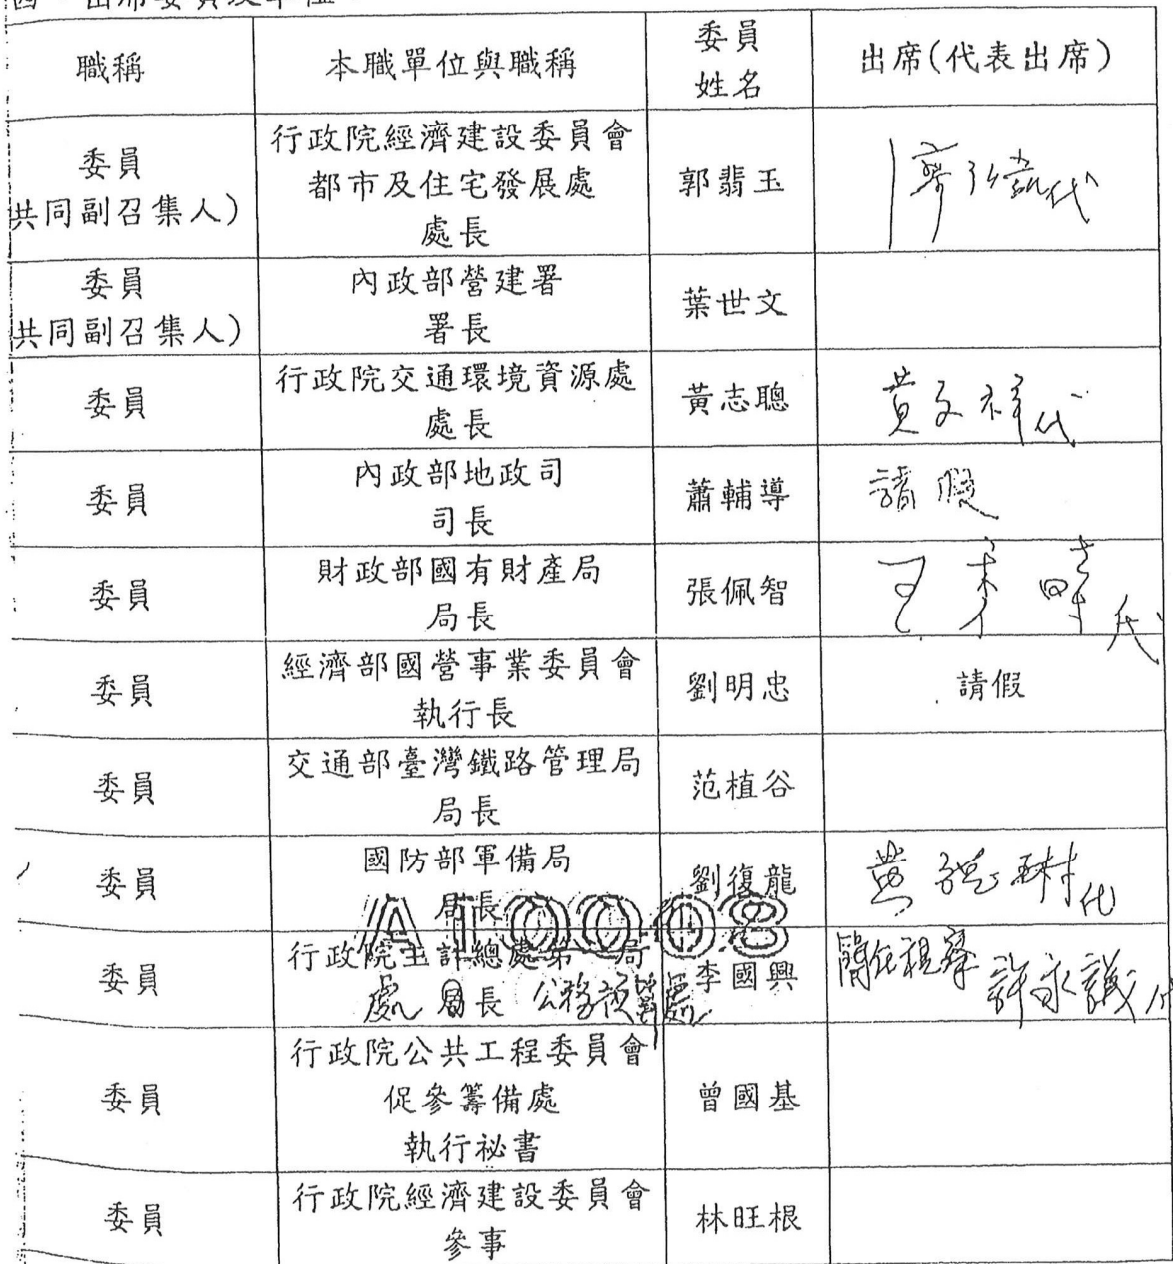 四、出席委員及單位：
職稱
本職單位與職稱
委員
姓名
出席(代表出席)
委員
共同副召集人)
行政院經濟建設委員會
都市及住宅發展處
處長
郭翡玉
代
委員
共同副召集人)
內政部營建署
署長
葉世文
委員
行政院交通環境資源處
處長
黃志聰
黃文祥代
委員
內政部地政司
司長
蕭輔導
請假
委員
財政部國有財產局
局長
張佩智
代
委員
經濟部國營事業委員會
執行長
劉明忠
請假
委員
交通部臺灣鐵路管理局
局長
范植谷
委員
國防部軍備局
局長
劉復龍
黃 代
A10008
委員
行政院主計總處第一局
處 局長 公務預算處
李國興
簡任視察 許永議代
委員
行政院公共工程委員會
促參籌備處
執行祕書
曾國基
委員
行政院經濟建設委員會
參事
林旺根